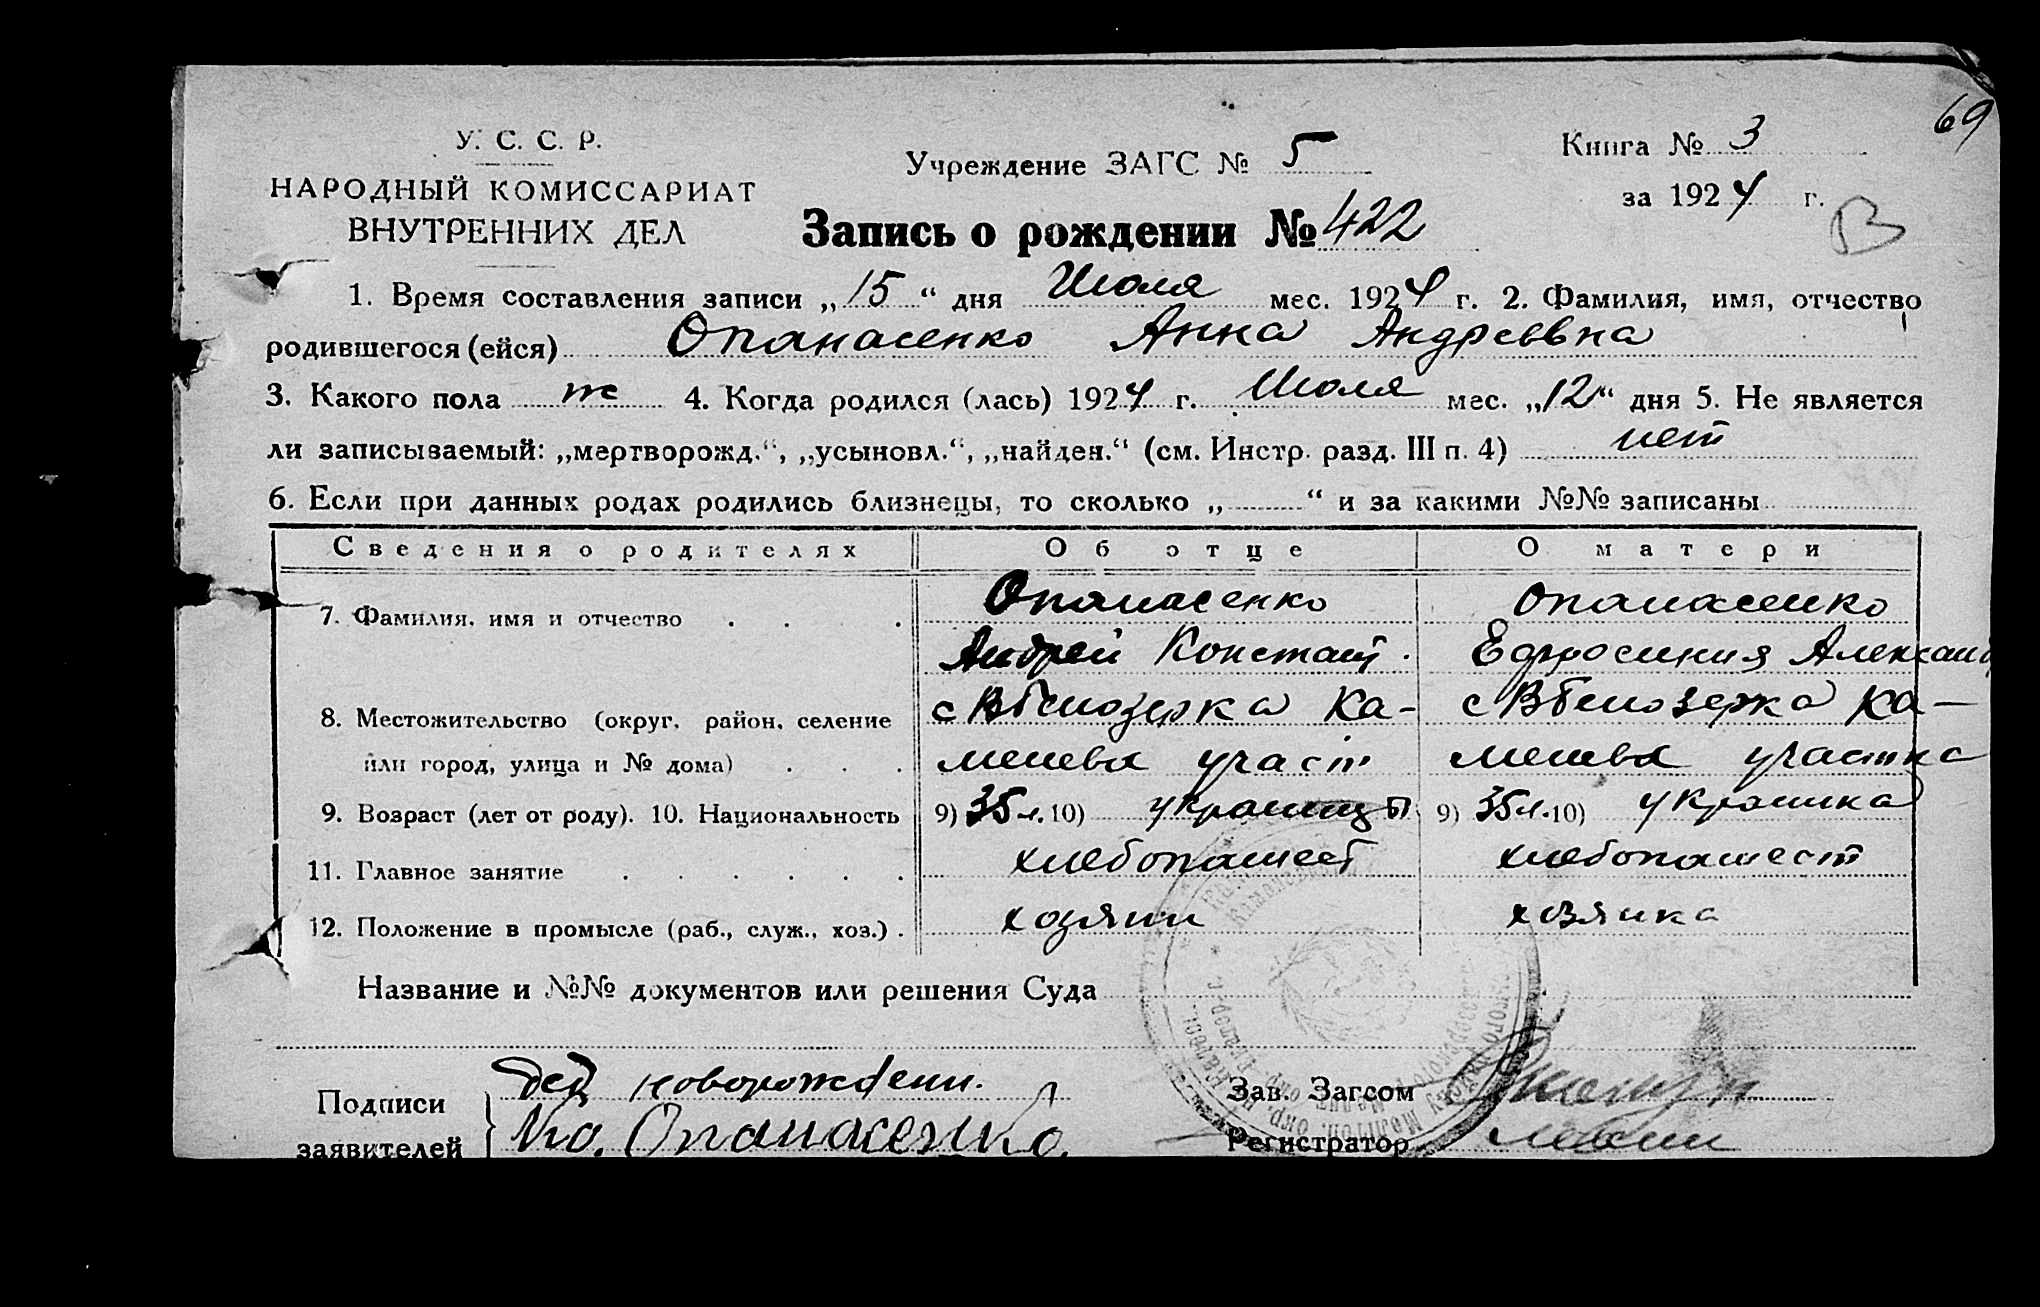 69
У. С. С. Р.
НАРОДНЫЙ КОМИССАРИАТ
ВНУТРЕННИХ ДЕЛ
Учреждение ЗАГС № 5
Книга № 3
за 1924 г.
В
Запись о рождении № 422
1. Время составления записи „15“ дня Июля мес. 1924 г. 2. Фамилия, имя, отчество
родившегося (ейся) Опанасенко Анна Андреевна
3. Какого пола ж 4. Когда родился (лась) 1924 г. Июля мес. „12“ дня 5. Не является
ли записываемый: „мертворожд.“, „усыновл.“, „найден.“ (см. Инстр. разд. III п. 4) нет
6. Если при данных родах родились близнецы, то сколько „ “ и за какими №№ записаны
Сведения о родителях Об отце О матери
7. Фамилия, имя и отчество Опанасенко Опанасенко
Андрей Констант. Ефросиния Александ
8. Местожительство (округ, район, селение с ВБелозерка Ка- с ВБелозерка Ка-
или город, улица и № дома) менева участ менева участка
9. Возраст (лет от роду). 10. Национальность 9) 35 л. 10) украинц 9) 35 л. 10) украинка
11. Главное занятие хлебопашест хлебопашест
12. Положение в промысле (раб., служ., хоз.) хозяин хозяйка
Название и №№ документов или решения Суда
Подписи
заявителей
дед новорожденн.
Ко. Опанасенко.
Зав. Загсом
Регистратор